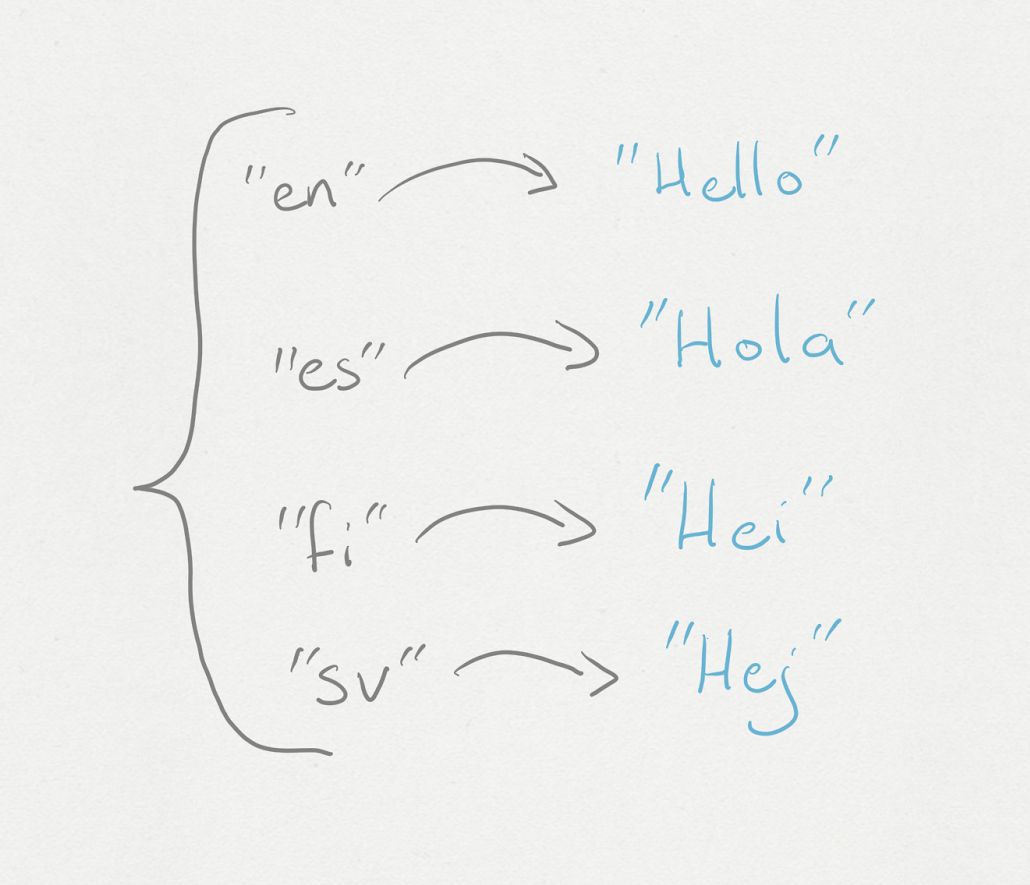 "en" "Hello"
"es" "Hola"
"fi" "Hei"
"sv" "Hej"